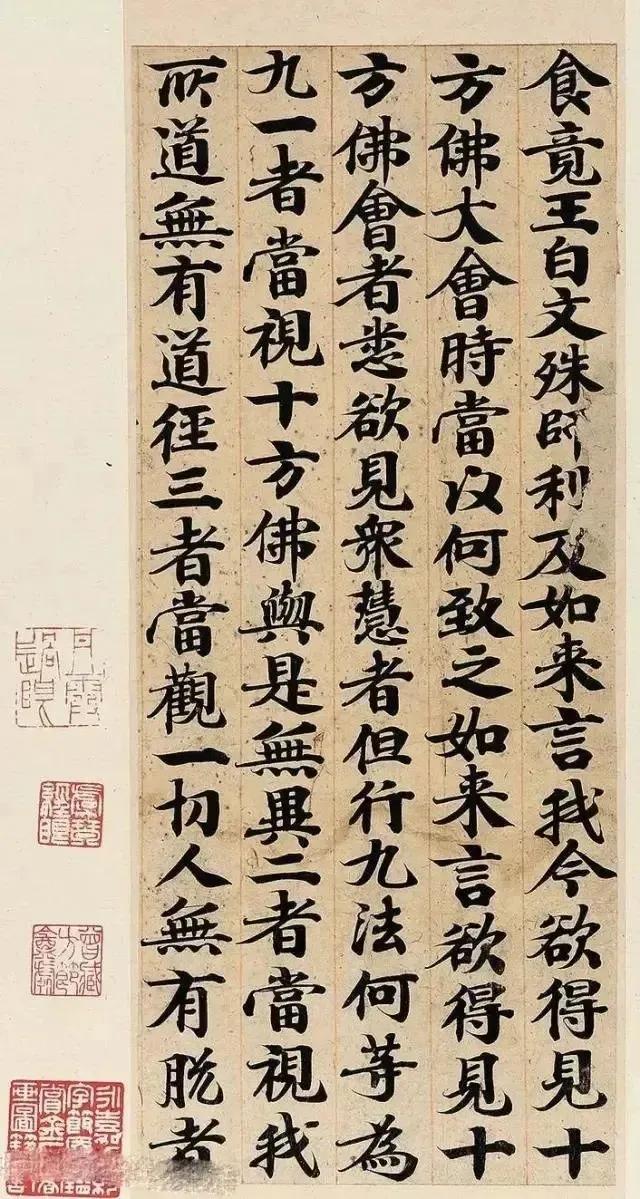 食竟王白文殊師利及如来言我今欲得見十
方佛大會時當以何致之如来言欲得見十
方佛會者悉欲見衆慧者但行九法何等為
九一者當視十方佛與是無異二者當視我
所道無有道徑三者當觀一切人無有脫者